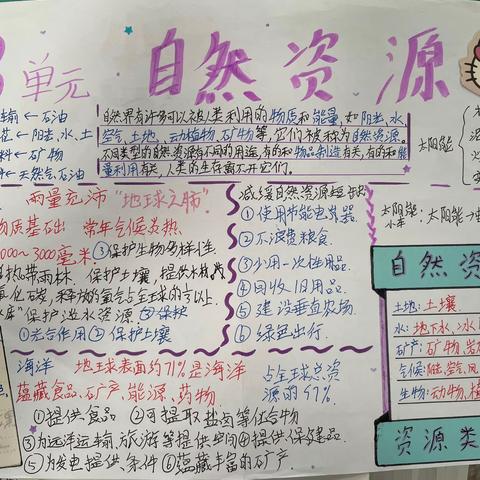 单元 自然资源
输←石油
自然界有许多可以被人类利用的物质和能量,如阳光、水、
空气、土地、动植物、矿物等,它们被称为自然资源。
不同类型的自然资源有不同的用途,有的和物品制造有关,有的和能
量利用有关,人类的生存离不开它们。
花←阳光、水、土
料←矿物
←天然气石油
太阳能
太阳能
小车:太阳能→
雨量充沛"地球之肺"
物质基础 常年气候炎热
~3000毫米 ③保护生物多样性
热带雨林 保护土壤,提供水
氧化碳,释放的氧气占全球的⅓以上
"保护淡水资源 ②保护
①光合作用②保护土壤
减缓自然资源短缺
①使用节能电器
②不浪费粮食.
③少用一次性用品.
④回收旧用品.
⑤建设垂直农场.
⑥绿色出行.
自然资
土地:土壤
水:地下水、冰
矿产:矿物、岩
气候:阳光、空气、风
生物:动物、植
资源类
海洋 地球表面约71%是海洋
蕴藏食品、矿产、能源、药物
占全球总资
源的47%.
①提供食品 ②可提取盐卤等化合物
③为远洋运输,旅游等提供空间④提供保健品.
⑤为发电提供条件 ⑥蕴藏丰富的矿产.